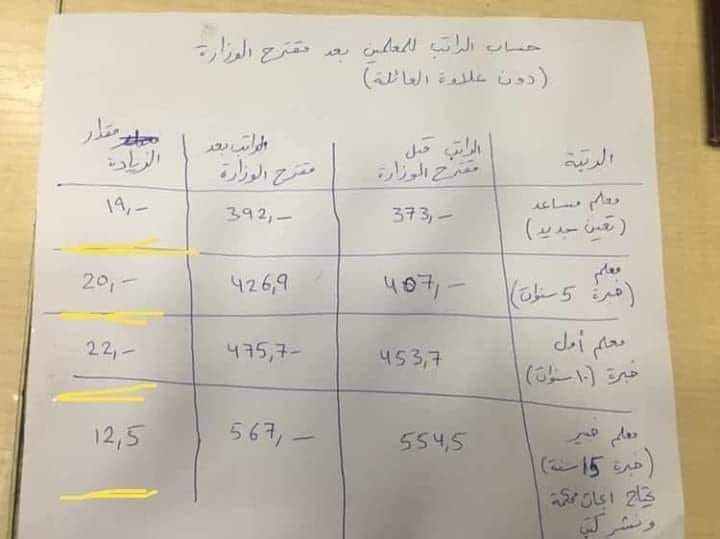 حساب الراتب للمعلمين بعد مقترح الوزارة
(دون علاوة العائلة)
الرتبة
الراتب قبل
مقترح الوزارة
الراتب بعد
مقترح الوزارة
مقدار
الزيادة
معلم مساعد
(تعين جديد)
373,-
392,-
19,-
معلم
(خبرة 5 سنوات)
407,-
426,9
20,-
معلم أول
خبرة (١٠ سنوات)
453,7
475,7-
22,-
معلم خبير
(خبرة 15 سنة)
يحتاج ابحاث محكمة
و نشر كتب
554,5
567,-
12,5